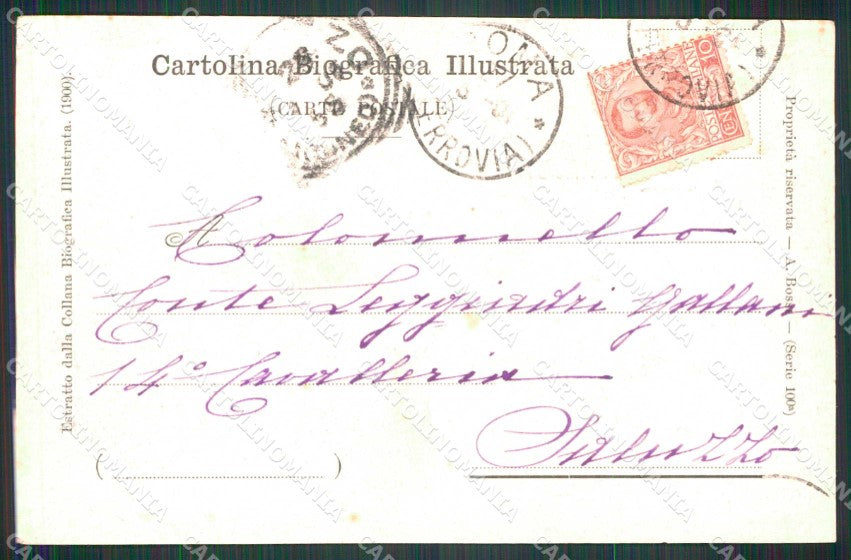 Cartolina Biografica Illustrata
(CARTE POSTALE)
ONA
(FERROVIA)
*
ZO
(CUNEO)
CENT
10
Colonnello
Conte Leggiadri Gallani
14° Cavalleria
Saluzzo
Estratto dalla Collana Biografica Illustrata. (1900).
Proprietà riservata — A. Bossi — (Serie 100ª)
CARTOLINOMANIA